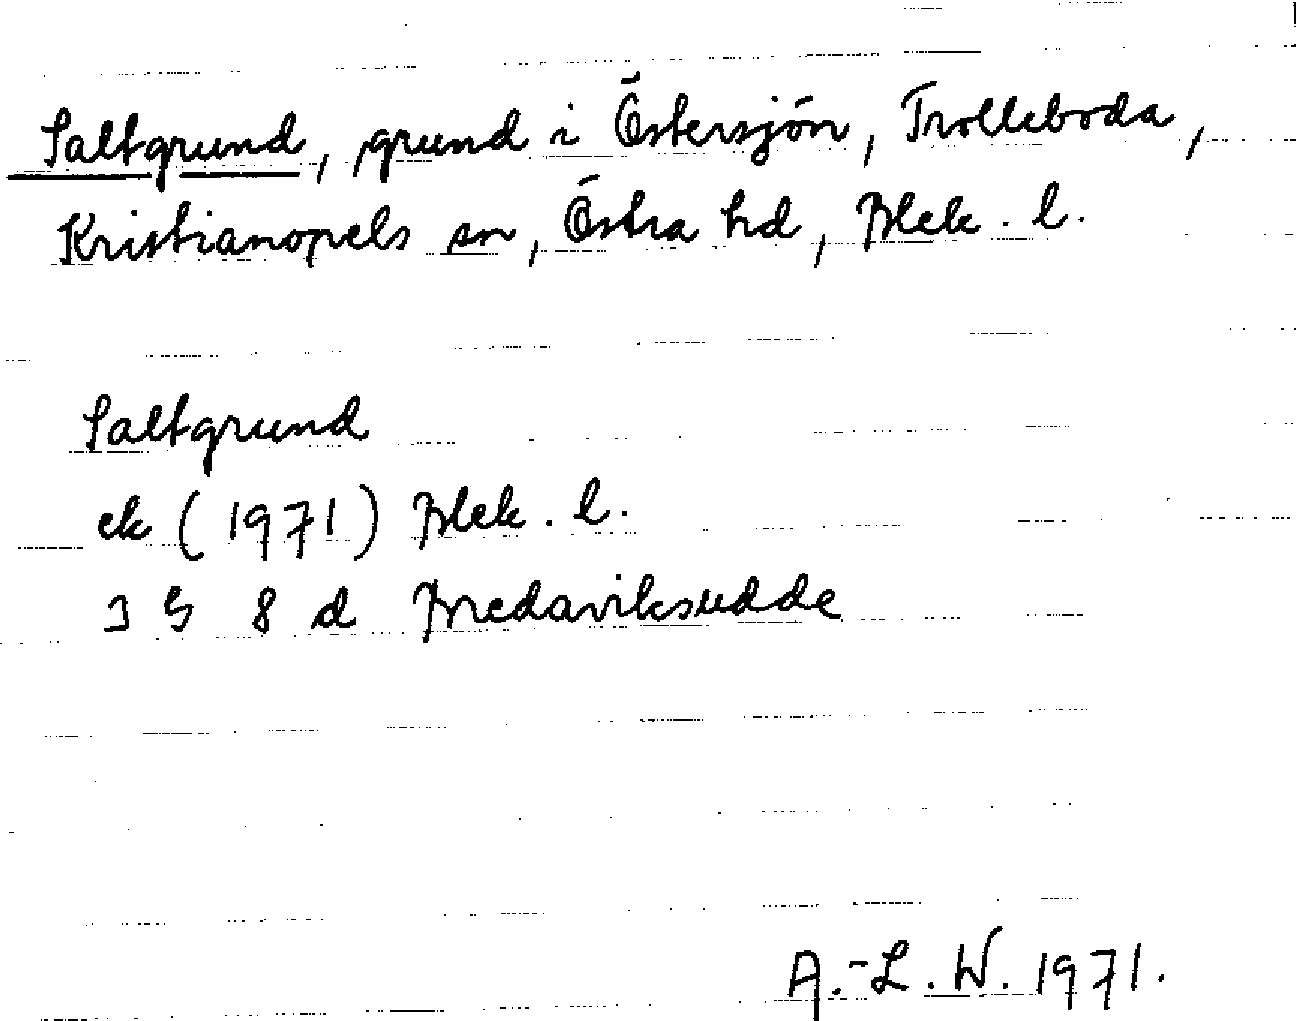 Saltgrund, grund i Östersjön, Trolleboda,
Kristianopels sn, Östra hd, Blek. l.
Saltgrund
ek (1971) Blek. l.
3 G 8 d Bredaviksudde
A.-L. W. 1971.